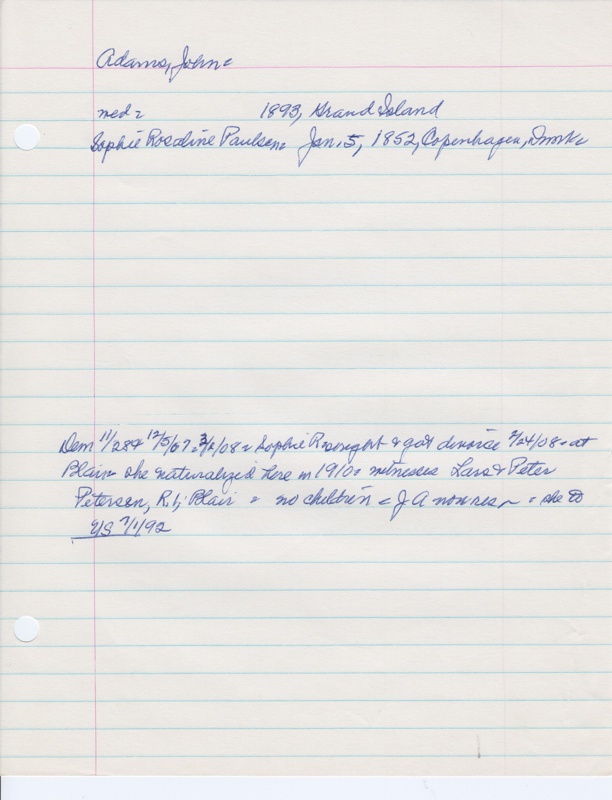 Adams, John=
med= 1893, Grand Island
Sophie Rosaline Paulsen= Jan. 5, 1852, Copenhagen, Dmrk=
Dem 11/28& 12/5/07= 3/2/08= Sophie R sought & got divorce 2/24/08= at
Blair= she naturalized here in 1910= witnesses Lars & Peter
Petersen, R.1, Blair = no children = J A nonres = she to
US 7/1/92